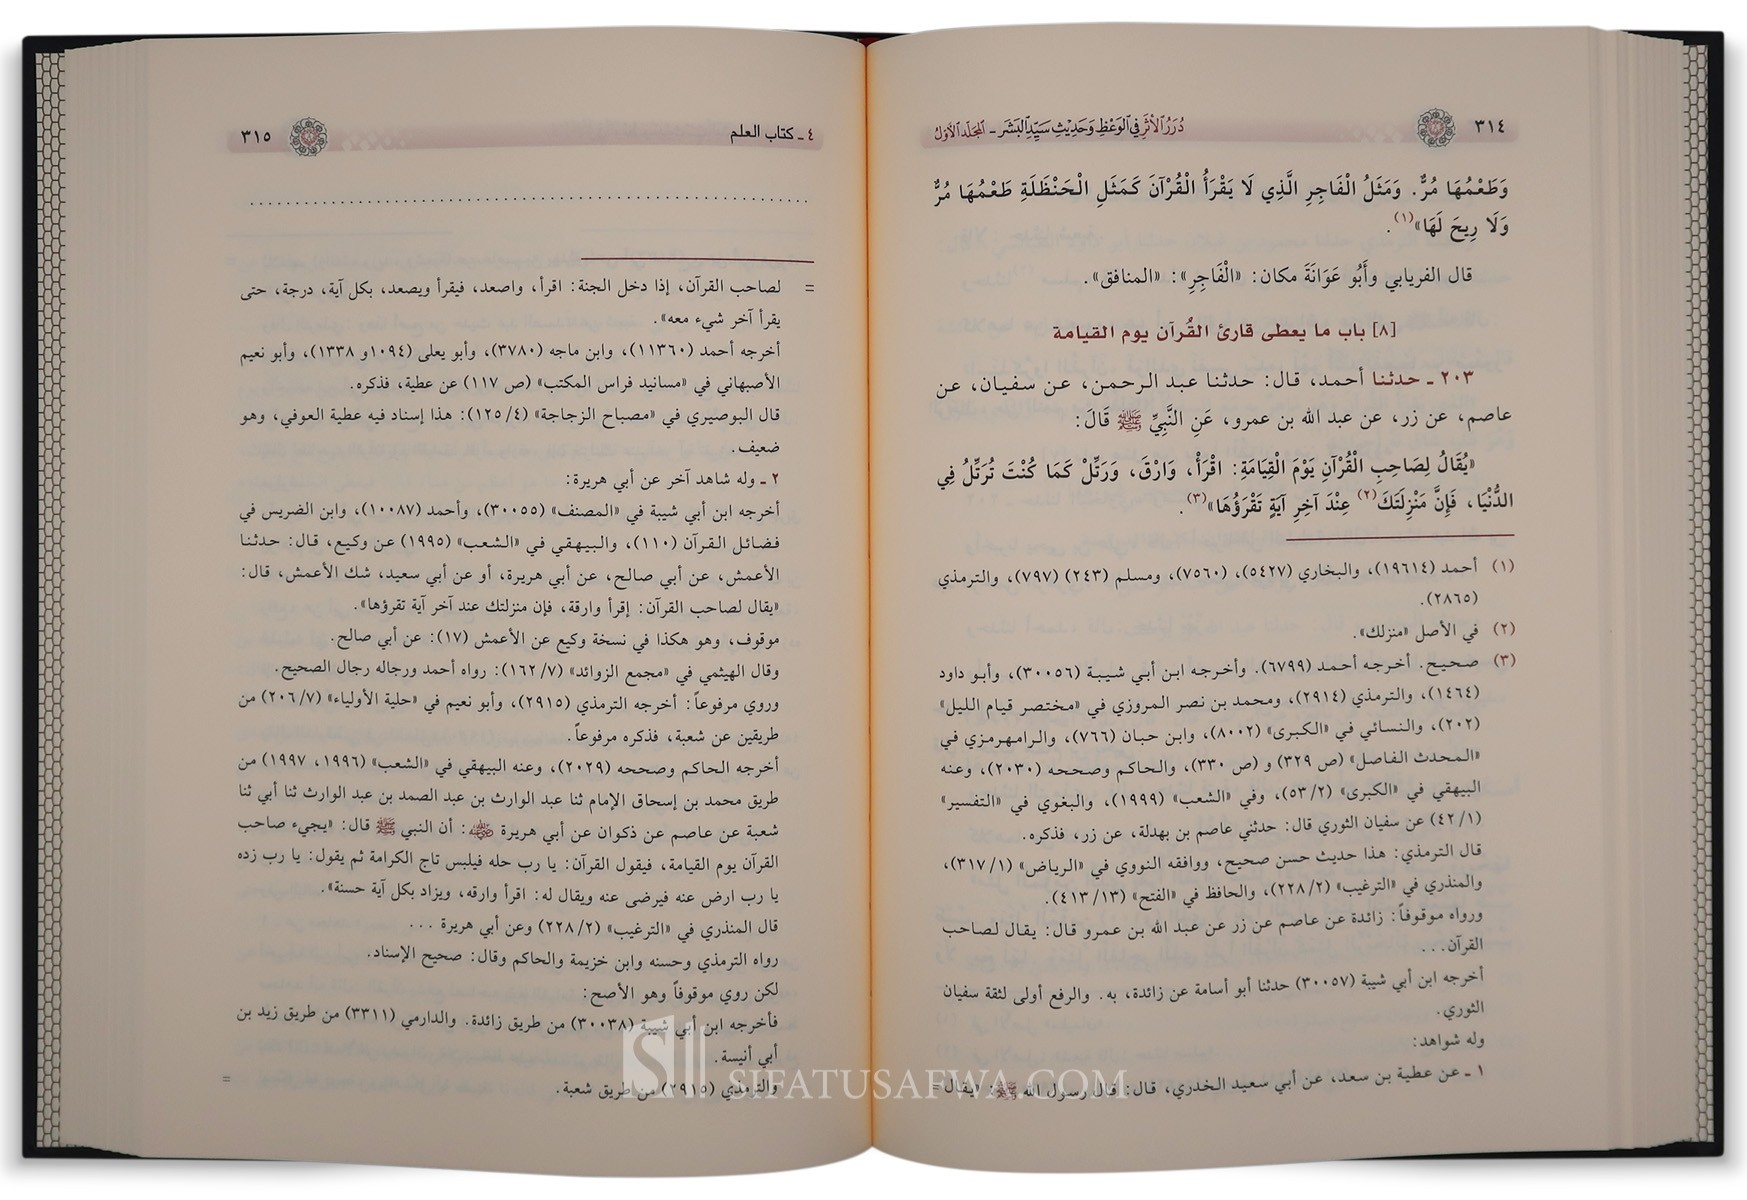 ٣١٤
دُرَرُ الأَثَرِ فِي الوَعْظِ وَحَدِيثِ سَيِّدِ البَشَرِ - المُجَلَّدُ الأَوَّلُ
وَطَعْمُهَا مُرٌّ. وَمَثَلُ الْفَاجِرِ الَّذِي لَا يَقْرَأُ الْقُرْآنَ كَمَثَلِ الْحَنْظَلَةِ طَعْمُهَا مُرٌّ
وَلَا رِيحَ لَهَا»(١).
قال الفريابي وأَبُو عَوَانَةَ مكان: «الْفَاجِرِ»: «المنافق».
[٨] باب ما يعطى قارئ القُرآن يوم القيامة
٢٠٣ ـ حدثنا أحمد، قال: حدثنا عبد الرحمن، عن سفيان، عن
عاصم، عن زر، عن عبد الله بن عمرو، عَنِ النَّبِيِّ ﷺ قَالَ:
«يُقَالُ لِصَاحِبِ الْقُرْآنِ يَوْمَ الْقِيَامَةِ: اقْرَأْ، وَارْقَ، وَرَتِّلْ كَمَا كُنْتَ تُرَتِّلُ فِي
الدُّنْيَا، فَإِنَّ مَنْزِلَتَكَ(٢) عِنْدَ آخِرِ آيَةٍ تَقْرَؤُهَا»(٣).
(١) أحمد (١٩٦١٤)، والبخاري (٥٤٢٧)، (٧٥٦٠)، ومسلم (٢٤٣) (٧٩٧)، والترمذي
(٢٨٦٥).
(٢) في الأصل «منزلك».
(٣) صحيح. أخرجه أحمد (٦٧٩٩). وأخرجه ابن أبي شيبة (٣٠٠٥٦)، وأبو داود
(١٤٦٤)، والترمذي (٢٩١٤)، ومحمد بن نصر المروزي في «مختصر قيام الليل»
(٢٠٢)، والنسائي في «الكبرى» (٨٠٠٢)، وابن حبان (٧٦٦)، والرامهرمزي في
«المحدث الفاصل» (ص ٣٢٩) و (ص ٣٣٠)، والحاكم وصححه (٢٠٣٠)، وعنه
البيهقي في «الكبرى» (٥٣/٢)، وفي «الشعب» (١٩٩٩)، والبغوي في «التفسير»
(٤٢/١) عن سفيان الثوري قال: حدثني عاصم بن بهدلة، عن زر، فذكره.
قال الترمذي: هذا حديث حسن صحيح، ووافقه النووي في «الرياض» (٣١٧/١)،
والمنذري في «الترغيب» (٢٢٨/٢)، والحافظ في «الفتح» (٤١٣/١٣).
ورواه موقوفاً: زائدة عن عاصم عن زر عن عبد الله بن عمرو قال: يقال لصاحب
القرآن...
أخرجه ابن أبي شيبة (٣٠٠٥٧) حدثنا أبو أسامة عن زائدة، به. والرفع أولى لثقة سفيان
الثوري.
وله شواهد:
١ ـ عن عطية بن سعد، عن أبي سعيد الخدري، قال: قال رسول الله ﷺ: «يقال =
٤ ـ كتاب العلم
٣١٥
= لصاحب القرآن، إذا دخل الجنة: اقرأ، واصعد، فيقرأ ويصعد، بكل آية، درجة، حتى
يقرأ آخر شيء معه».
أخرجه أحمد (١١٣٦٠)، وابن ماجه (٣٧٨٠)، وأبو يعلى (١٠٩٤ و ١٣٣٨)، وأبو نعيم
الأصبهاني في «مسانيد فراس المكتب» (ص ١١٧) عن عطية، فذكره.
قال البوصيري في «مصباح الزجاجة» (١٢٥/٤): هذا إسناد فيه عطية العوفي، وهو
ضعيف.
٢ ـ وله شاهد آخر عن أبي هريرة:
أخرجه ابن أبي شيبة في «المصنف» (٣٠٠٥٥)، وأحمد (١٠٠٨٧)، وابن الضريس في
فضائل القرآن (١١٠)، والبيهقي في «الشعب» (١٩٩٥) عن وكيع، قال: حدثنا
الأعمش، عن أبي صالح، عن أبي هريرة، أو عن أبي سعيد، شك الأعمش، قال:
«يقال لصاحب القرآن: إقرأ وارقة، فإن منزلتك عند آخر آية تقرؤها».
موقوف، وهو هكذا في نسخة وكيع عن الأعمش (١٧): عن أبي صالح.
وقال الهيثمي في «مجمع الزوائد» (١٦٢/٧): رواه أحمد ورجاله رجال الصحيح.
وروي مرفوعاً: أخرجه الترمذي (٢٩١٥)، وأبو نعيم في «حلية الأولياء» (٢٠٦/٧) من
طريقين عن شعبة، فذكره مرفوعاً.
أخرجه الحاكم وصححه (٢٠٢٩)، وعنه البيهقي في «الشعب» (١٩٩٦، ١٩٩٧) من
طريق محمد بن إسحاق الإمام ثنا عبد الوارث بن عبد الصمد بن عبد الوارث ثنا أبي ثنا
شعبة عن عاصم عن ذكوان عن أبي هريرة رضي الله عنه: أن النبي ﷺ قال: «يجيء صاحب
القرآن يوم القيامة، فيقول القرآن: يا رب حله فيلبس تاج الكرامة ثم يقول: يا رب زده
يا رب ارض عنه فيرضى عنه ويقال له: اقرأ وارقه، ويزاد بكل آية حسنة».
قال المنذري في «الترغيب» (٢٢٨/٢) وعن أبي هريرة ...
رواه الترمذي وحسنه وابن خزيمة والحاكم وقال: صحيح الإسناد.
لكن روي موقوفاً وهو الأصح:
فأخرجه ابن أبي شيبة (٣٠٠٣٨) من طريق زائدة. والدارمي (٣٣١١) من طريق زيد بن
أبي أنيسة.
والترمذي (٢٩١٥) من طريق شعبة. =
SIFATUSAFWA.COM